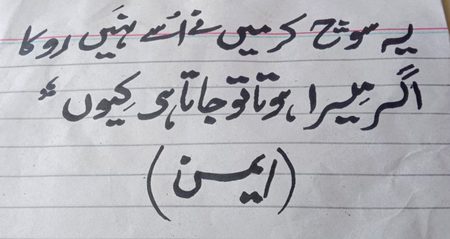 یہ سوچ کر میں نے اُسے نہیں روکا
اگر میرا ہوتا تو جاتا ہی کیوں
(ایمن)